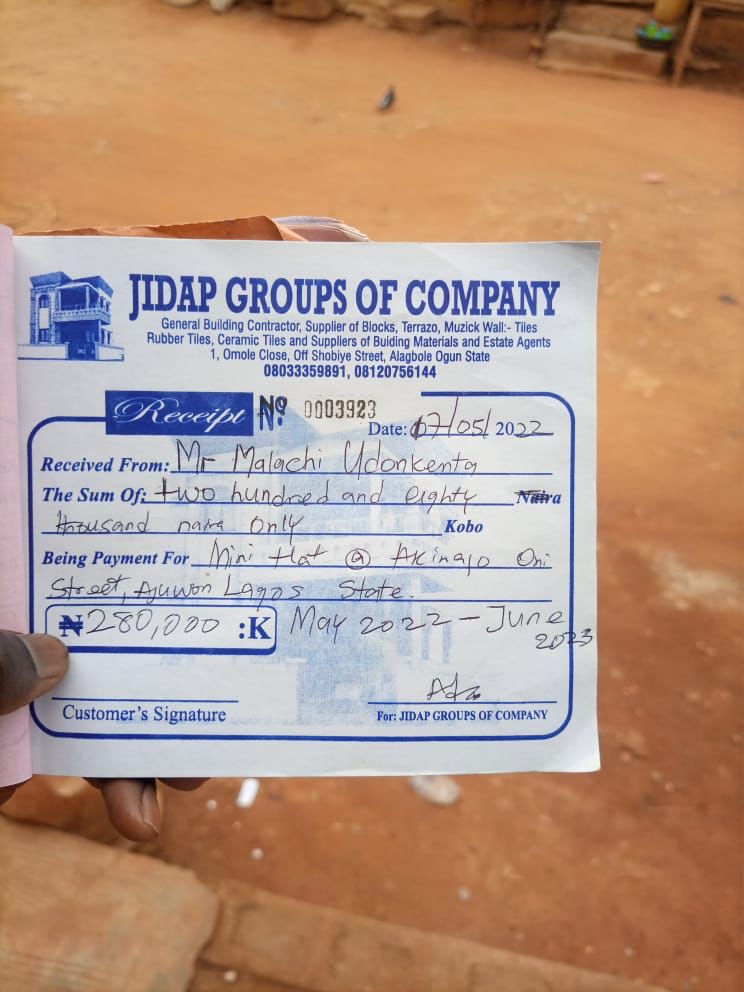 JIDAP GROUPS OF COMPANY
General Building Contractor, Supplier of Blocks, Terrazo, Muzick Wall:- Tiles
Rubber Tiles, Ceramic Tiles and Suppliers of Buiding Materials and Estate Agents
1, Omole Close, Off Shobiye Street, Alagbole Ogun State
08033359891, 08120756144
Receipt Nº 0003923
Date: 17/05/2022
Received From: Mr Malachi Udonkenta
The Sum Of: two hundred and eighty Naira
thousand naira only Kobo
Being Payment For Mini flat @ Akinajo Oni
Street, Ajuwon Lagos State.
₦280,000 :K May 2022 - June
2023
Customer's Signature
For: JIDAP GROUPS OF COMPANY